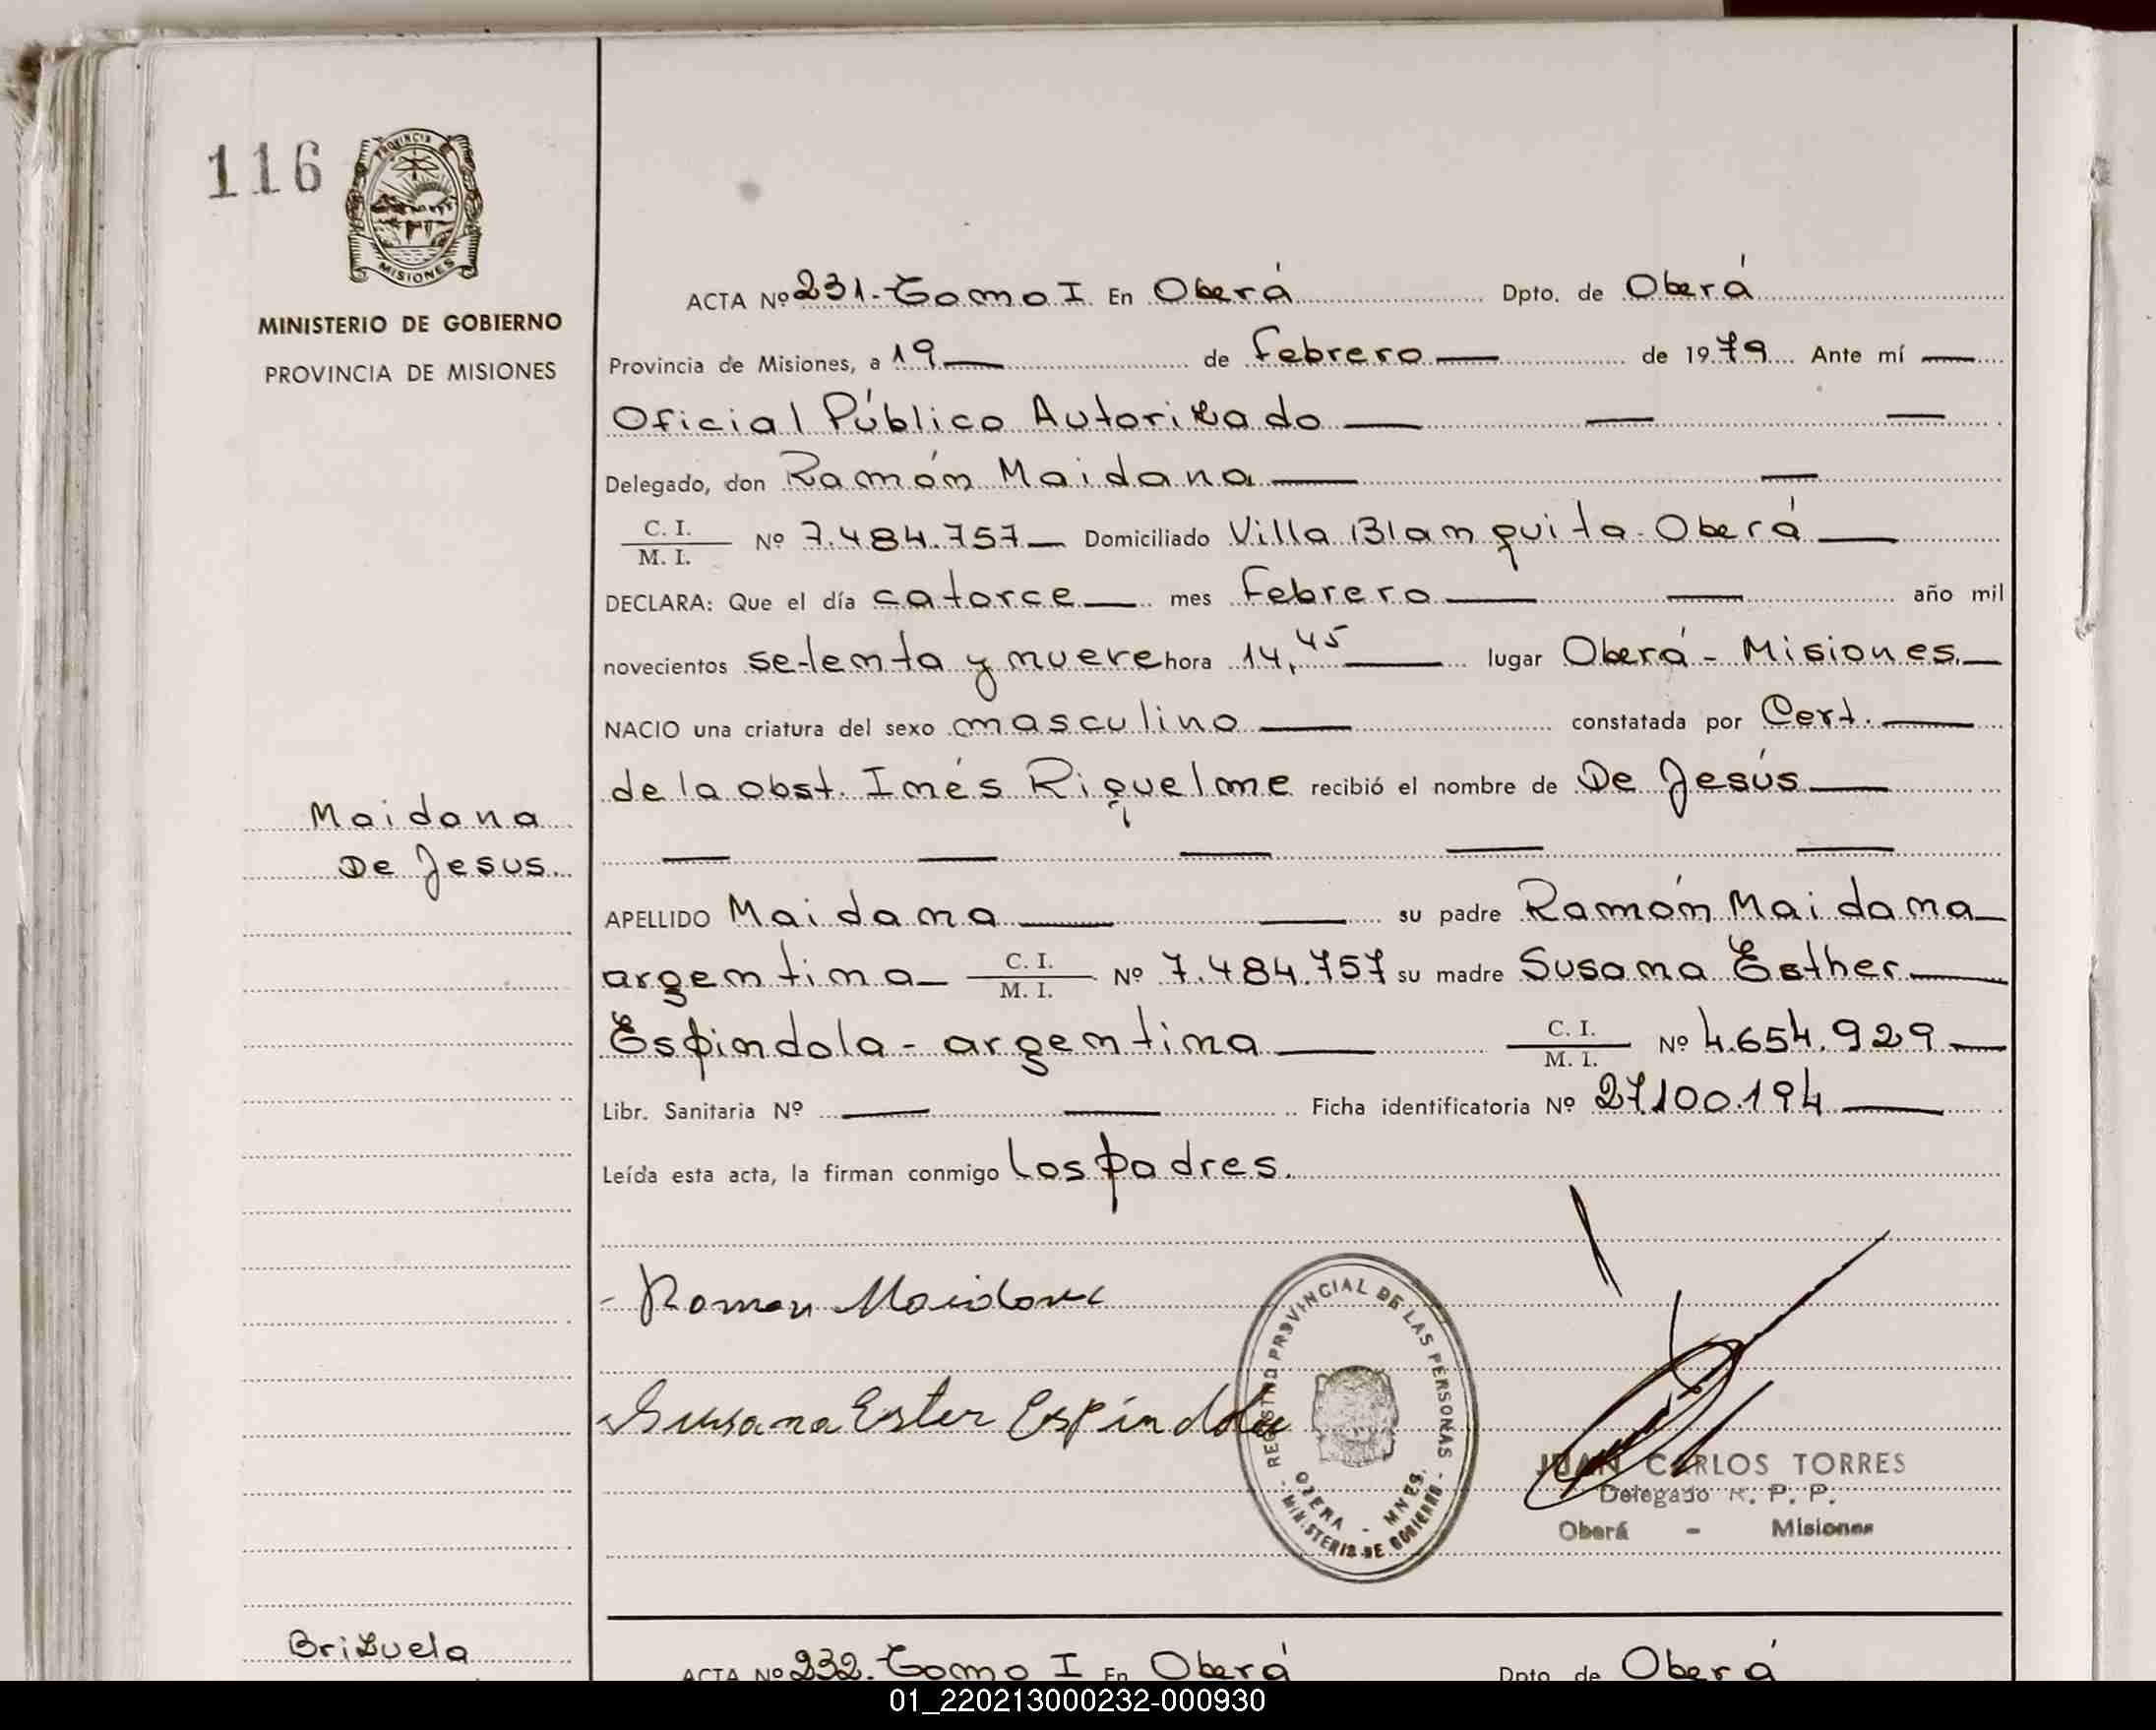 116
PROVINCIA
MISIONES
MINISTERIO DE GOBIERNO
PROVINCIA DE MISIONES
ACTA Nº 231.-Tomo I En Oberá Dpto. de Oberá
Provincia de Misiones, a 19 — de Febrero — de 1979 Ante mí —
Oficial Público Autorizado — — —
Delegado, don Ramón Maidana — —
C. I.
M. I. Nº 7.484.757 — Domiciliado Villa Blanquita - Oberá —
DECLARA: Que el día catorce — mes Febrero — — año mil
novecientos setenta y nueve hora 14,45 — lugar Oberá - Misiones. —
NACIO una criatura del sexo masculino — constatada por Cert. —
de la obst. Inés Riquelme recibió el nombre de De Jesús —
Maidana
De Jesus
— — — — —
APELLIDO Maidana — — su padre Ramón Maidana —
argentina — C. I. M. I. Nº 7.484.757 su madre Susana Esther —
Espindola - argentina — C. I. M. I. Nº 4.654.929 —
Libr. Sanitaria Nº — — Ficha identificatoria Nº 27.100.194 —
Leída esta acta, la firman conmigo los padres.
Roman Maidana
Susana Ester Espíndola
REGISTRO PROVINCIAL DE LAS PERSONAS
OBERA - MNES.
- MINISTERIO DE GOBIERNO -
JUAN CARLOS TORRES
Delegado R. P. P.
Oberá - Misiones
Brizuela
ACTA Nº 232.-Tomo I En Oberá Dpto. de Oberá
01_220213000232-000930